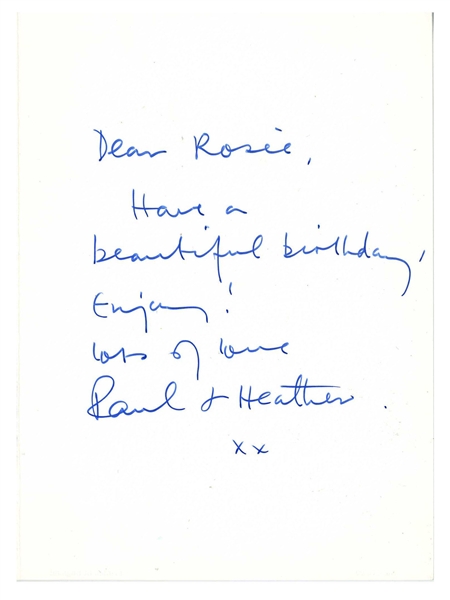 Dear Rosie,
Have a
beautiful birthday,
Enjoy!
lots of love
Paul & Heather.
xx